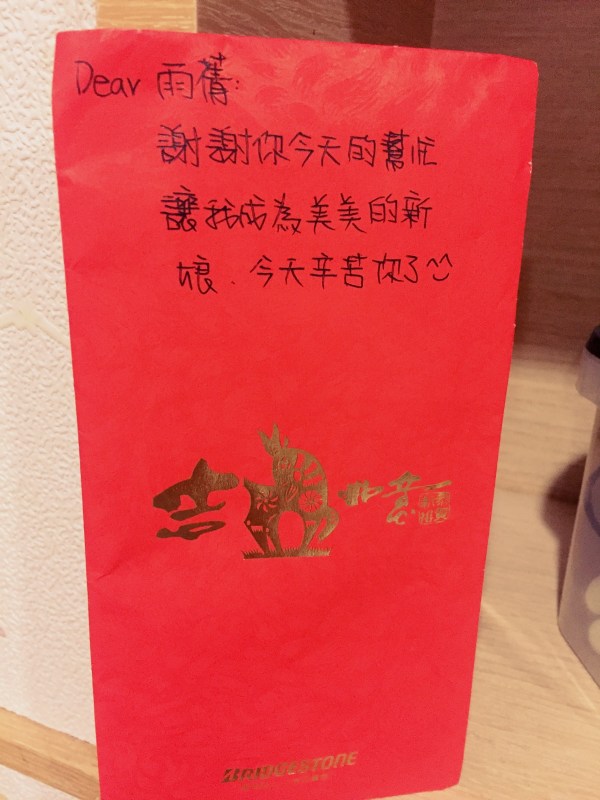 Dear 雨蒨:
謝謝你今天的幫忙
讓我成為美美的新
娘. 今天辛苦你了^^
吉 如意
BRIDGESTONE